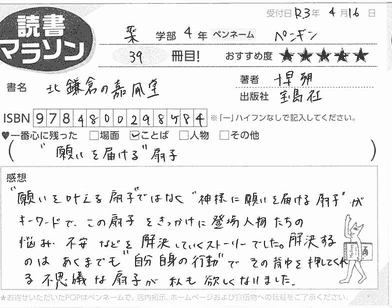 受付日 R3年 4月16日
読書マラソン
薬 学部 4年 ペンネーム ペンギン
39 冊目! おすすめ度 ★★★★★
書名 北鎌倉の嘉風堂
著者
出版社 宝島社
ISBN 9784800298784 ※「-」ハイフンなしで記入してください。
♥一番心に残った □場面 ☑ことば □人物 □その他
( "願いを届ける"扇子 )
感想
"願いを叶える扇子"ではなく"神様に願いを届ける扇子"が
キーワードで、この扇子をきっかけに登場人物たちの
悩み・不安などを解決していくストーリーでした。解決する
のはあくまでも"自分自身の行動"で その背中を押してくれ
る不思議な扇子が私も欲しくなりました。
★お寄せいただいたPOPはペンネームで、店内掲示、ホームページおよび宣伝物への転載をご了承ください。